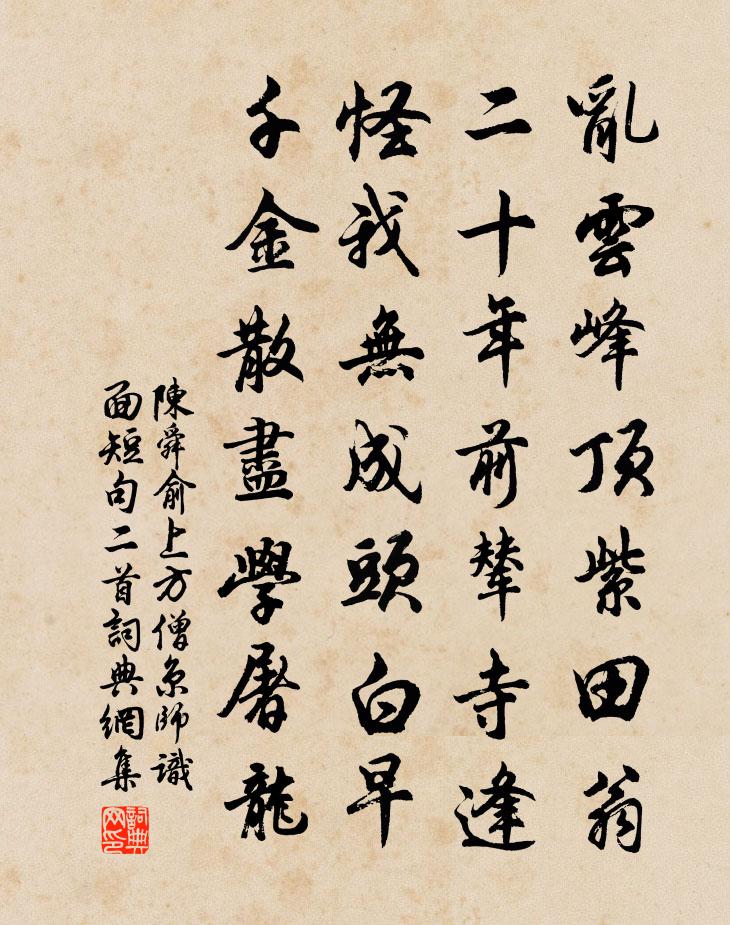 亂雲峰頂紫田翁
二十年前輦寺逢
怪我無成頭白早
千金散盡學屠龍
陳舜俞上方僧京師識
面短句二首詞典網集
詞典
网印